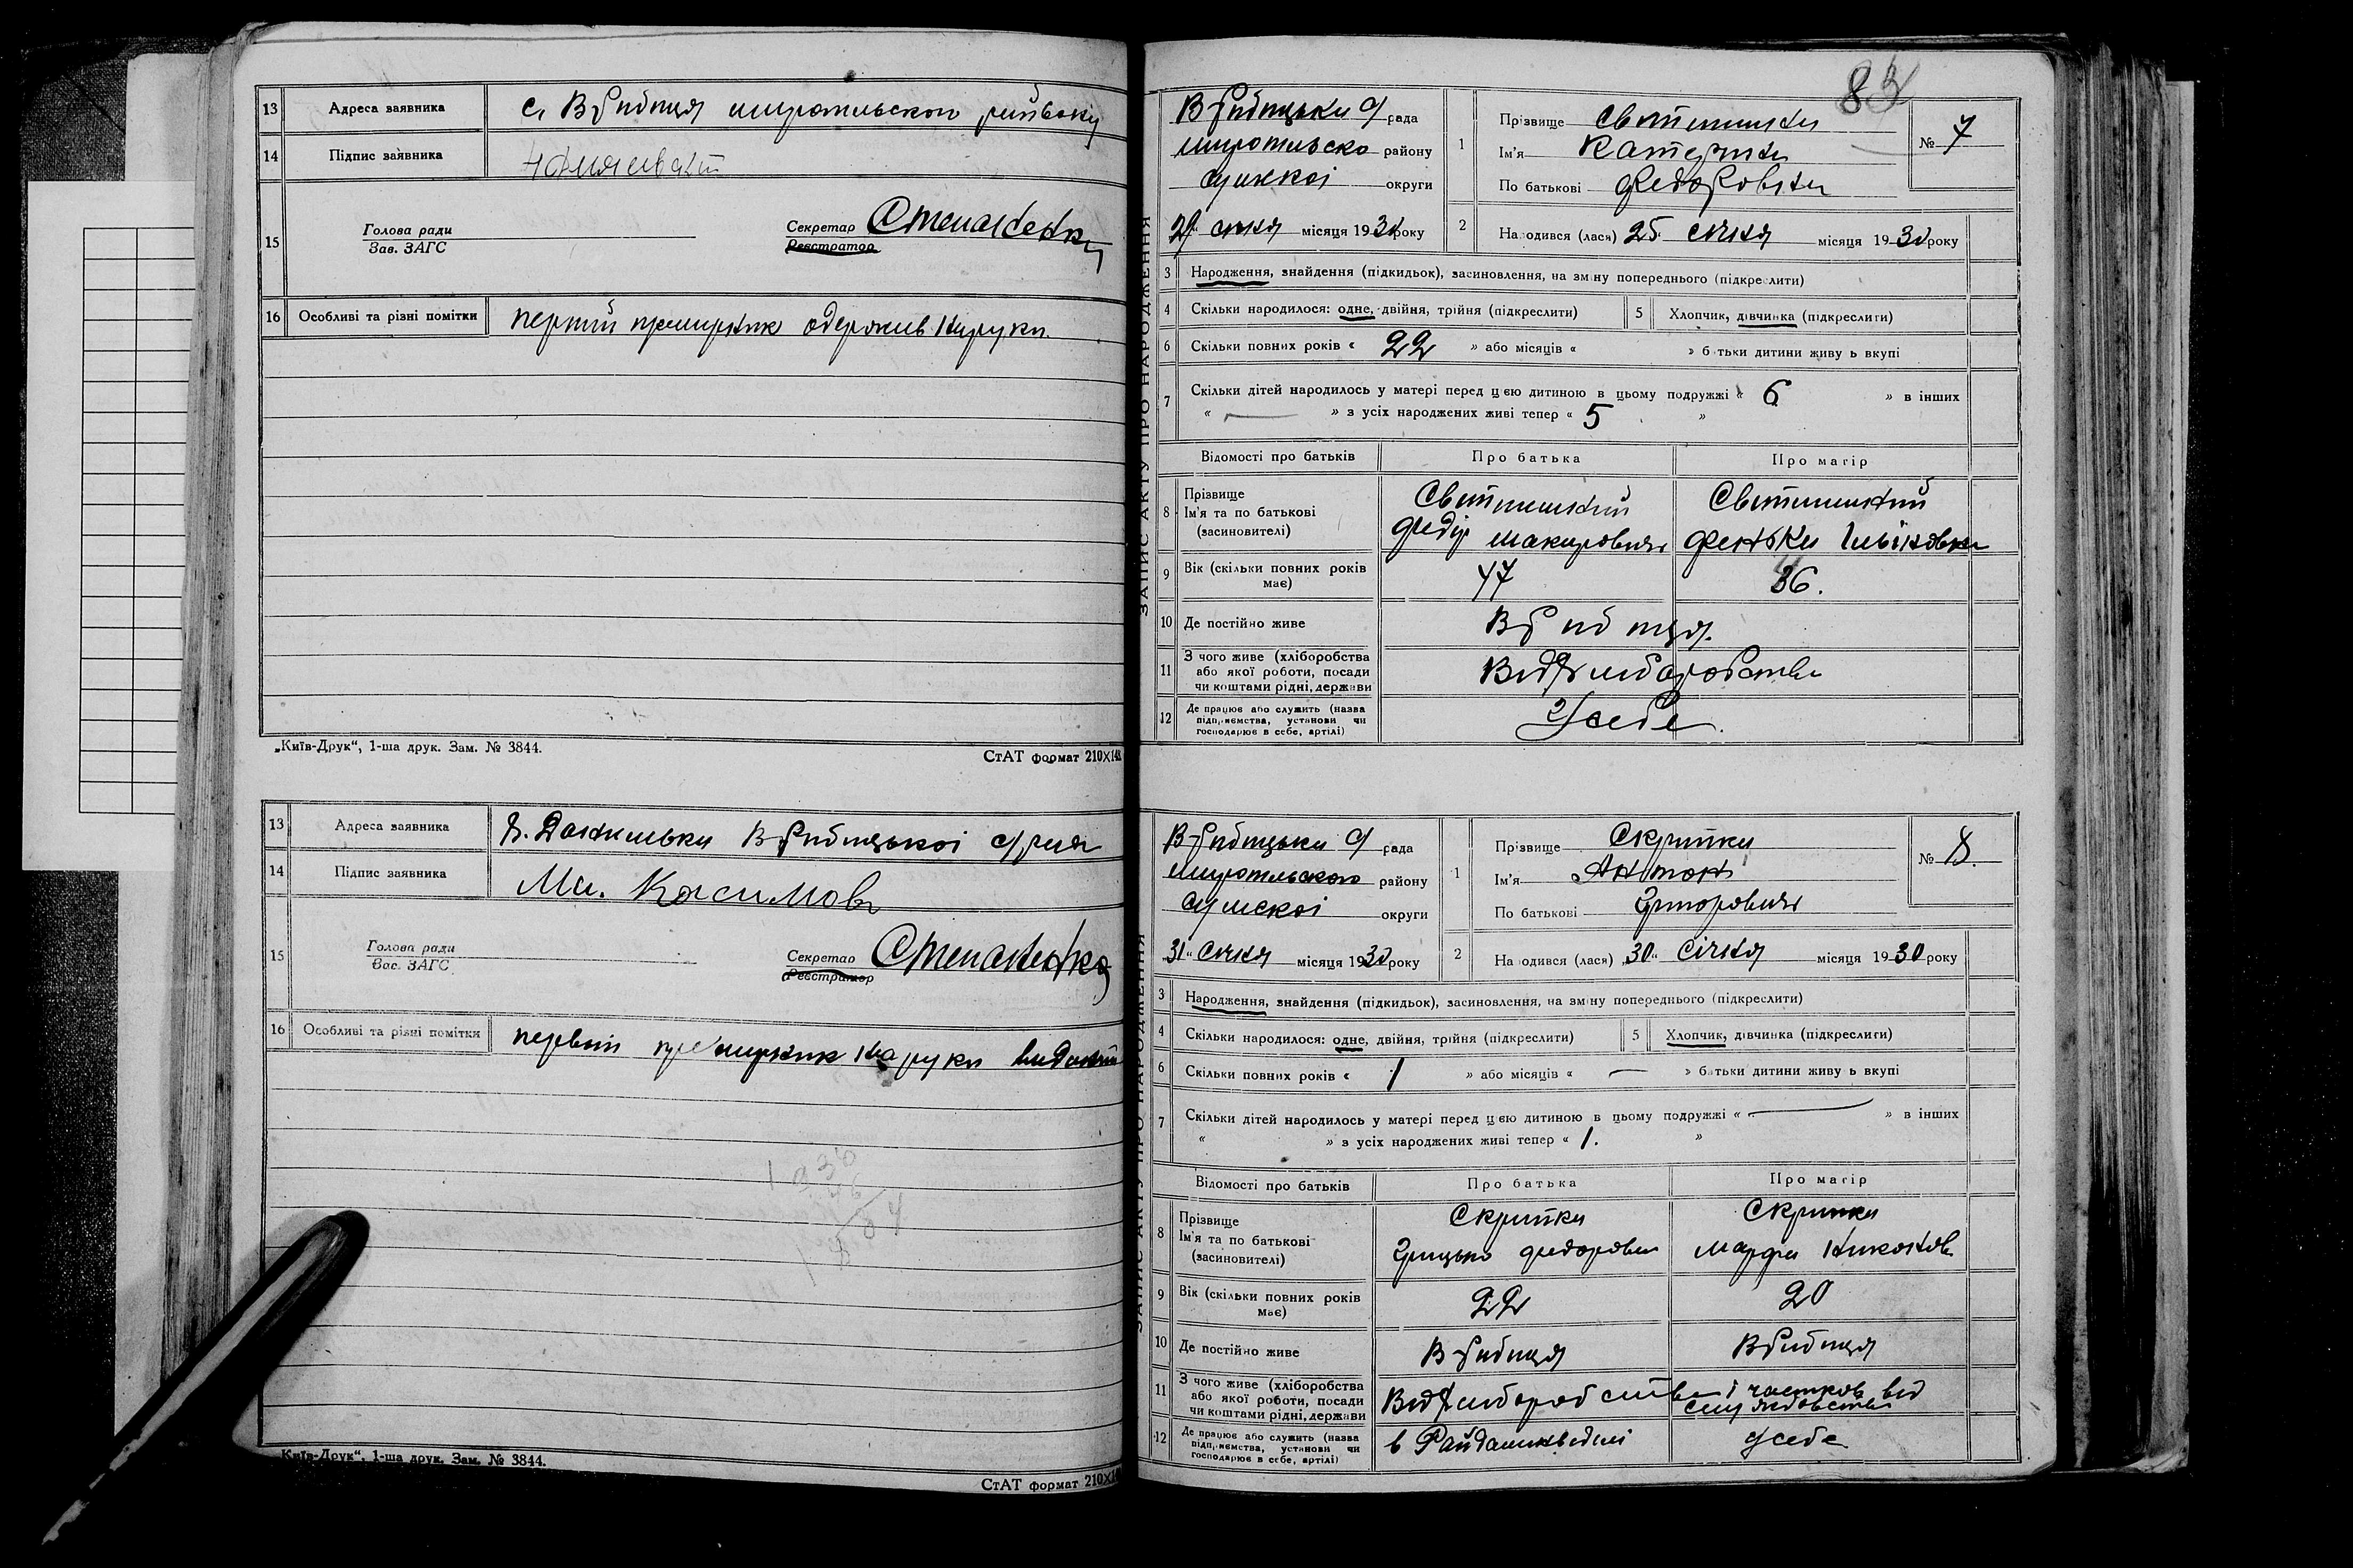 13 Адреса заявника с. В рибиця миропильского району
14 Підпис заявника
15 Голова ради
Зав. ЗАГС
Секретар Степаненко
Реєстратор
16 Особливі та різні помітки первий примирник одержив на руки.
„Київ-Друк“, 1-ша друк. Зам. № 3844.
СтАТ формат 210×148
13 Адреса заявника В рибицької с/ради
14 Підпис заявника
15 Голова ради
Зас. ЗАГС
Секретар Степаненко
Реєстратор
16 Особливі та різні помітки первий примирник на руки
Київ-Друк“, 1-ша друк. Зам. № 3844.
СтАТ формат 210×14
83
ЗАПИС АКТУ ПРО НАРОДЖЕННЯ
рада
району
сумскої округи
29 січня місяця 1930 року
1 Прізвище
Ім'я Катерина
По батькові Федоровна
№ 7
2 Народився (лася) 25 січня місяця 1930 року
3 Народження, знайдення (підкидьок), засиновлення, на зміну попереднього (підкреслити)
4 Скільки народилося: одне, двійня, трійня (підкреслити)
5 Хлопчик, дівчинка (підкреслити)
6 Скільки повних років « 22 » або місяців « » батьки дитини живуть вкупі
7 Скільки дітей народилось у матері перед цією дитиною в цьому подружжі « 6 » в інших
« — » з усіх народжених живі тепер « 5 »
Відомості про батьків Про батька Про матір
8 Прізвище
Ім'я та по батькові
(засиновителі)
Федір макарович
9 Вік (скільки повних років має) 47 36.
10 Де постійно живе В рибиця.
11 З чого живе (хліборобства
або якої роботи, посади
чи коштами рідні, держави
Від хліборобства
12 Де працює або служить (назва
підприємства, установи чи
господарює в себе, артілі)
У себе
ЗАПИС АКТУ ПРО НАРОДЖЕННЯ
рада
миропильского району
сумскої округи
31 січня місяця 1930 року
1 Прізвище Скрипка
Ім'я Антон
По батькові
№ 8.
2 Народився (лася) „30“ січня місяця 1930 року
3 Народження, знайдення (підкидьок), засиновлення, на зміну попереднього (підкреслити)
4 Скільки народилося: одне, двійня, трійня (підкреслити)
5 Хлопчик, дівчинка (підкреслити)
6 Скільки повних років « 1 » або місяців « — » батьки дитини живуть вкупі
7 Скільки дітей народилось у матері перед цією дитиною в цьому подружжі « — » в інших
« » з усіх народжених живі тепер « 1. »
Відомості про батьків Про батька Про матір
8 Прізвище
Ім'я та по батькові
(засиновителі)
Скрипка Скрипка
Грицько
9 Вік (скільки повних років має) 22 20
10 Де постійно живе В рибиця В рибиця
11 З чого живе (хліборобства
або якої роботи, посади
чи коштами рідні, держави
Від хліборобства і частков від
12 Де працює або служить (назва
підприємства, установи чи
господарює в себе, артілі)
в у себе